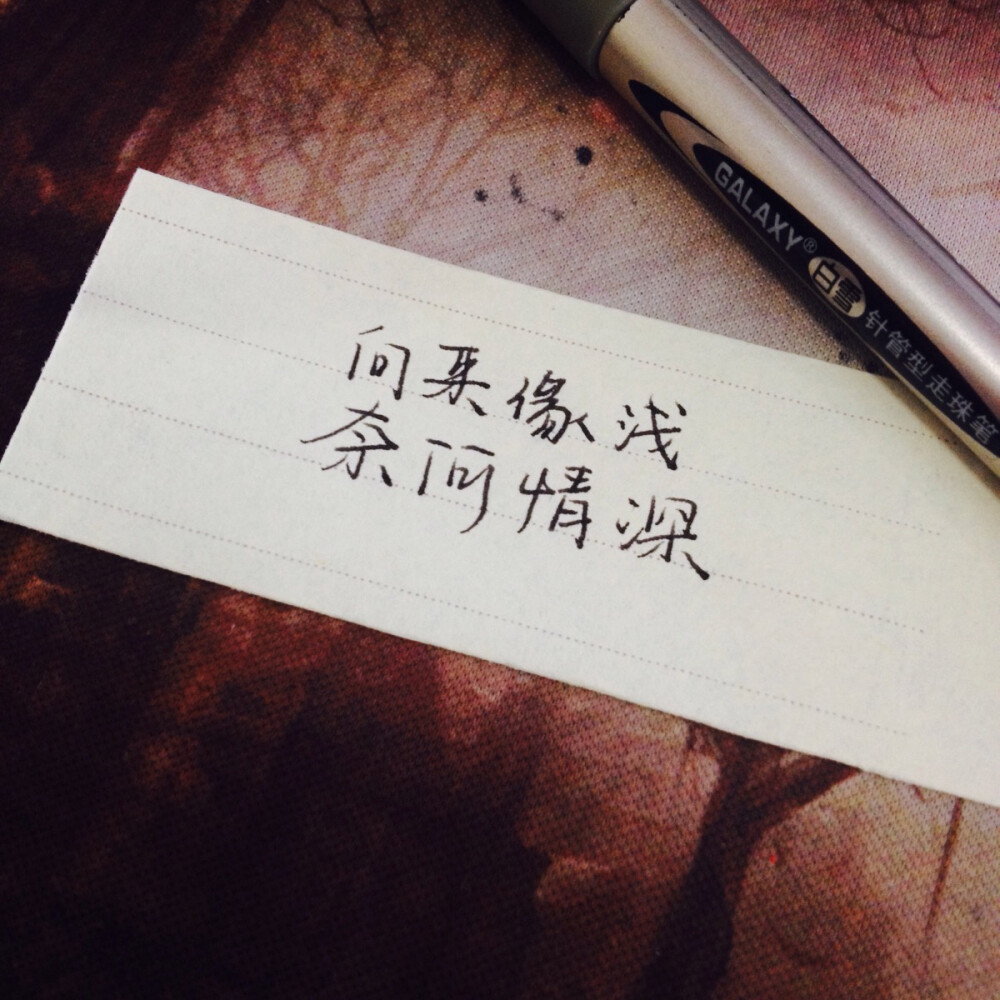 向来缘浅
奈何情深
GALAXY® 白雪 针管型走珠笔